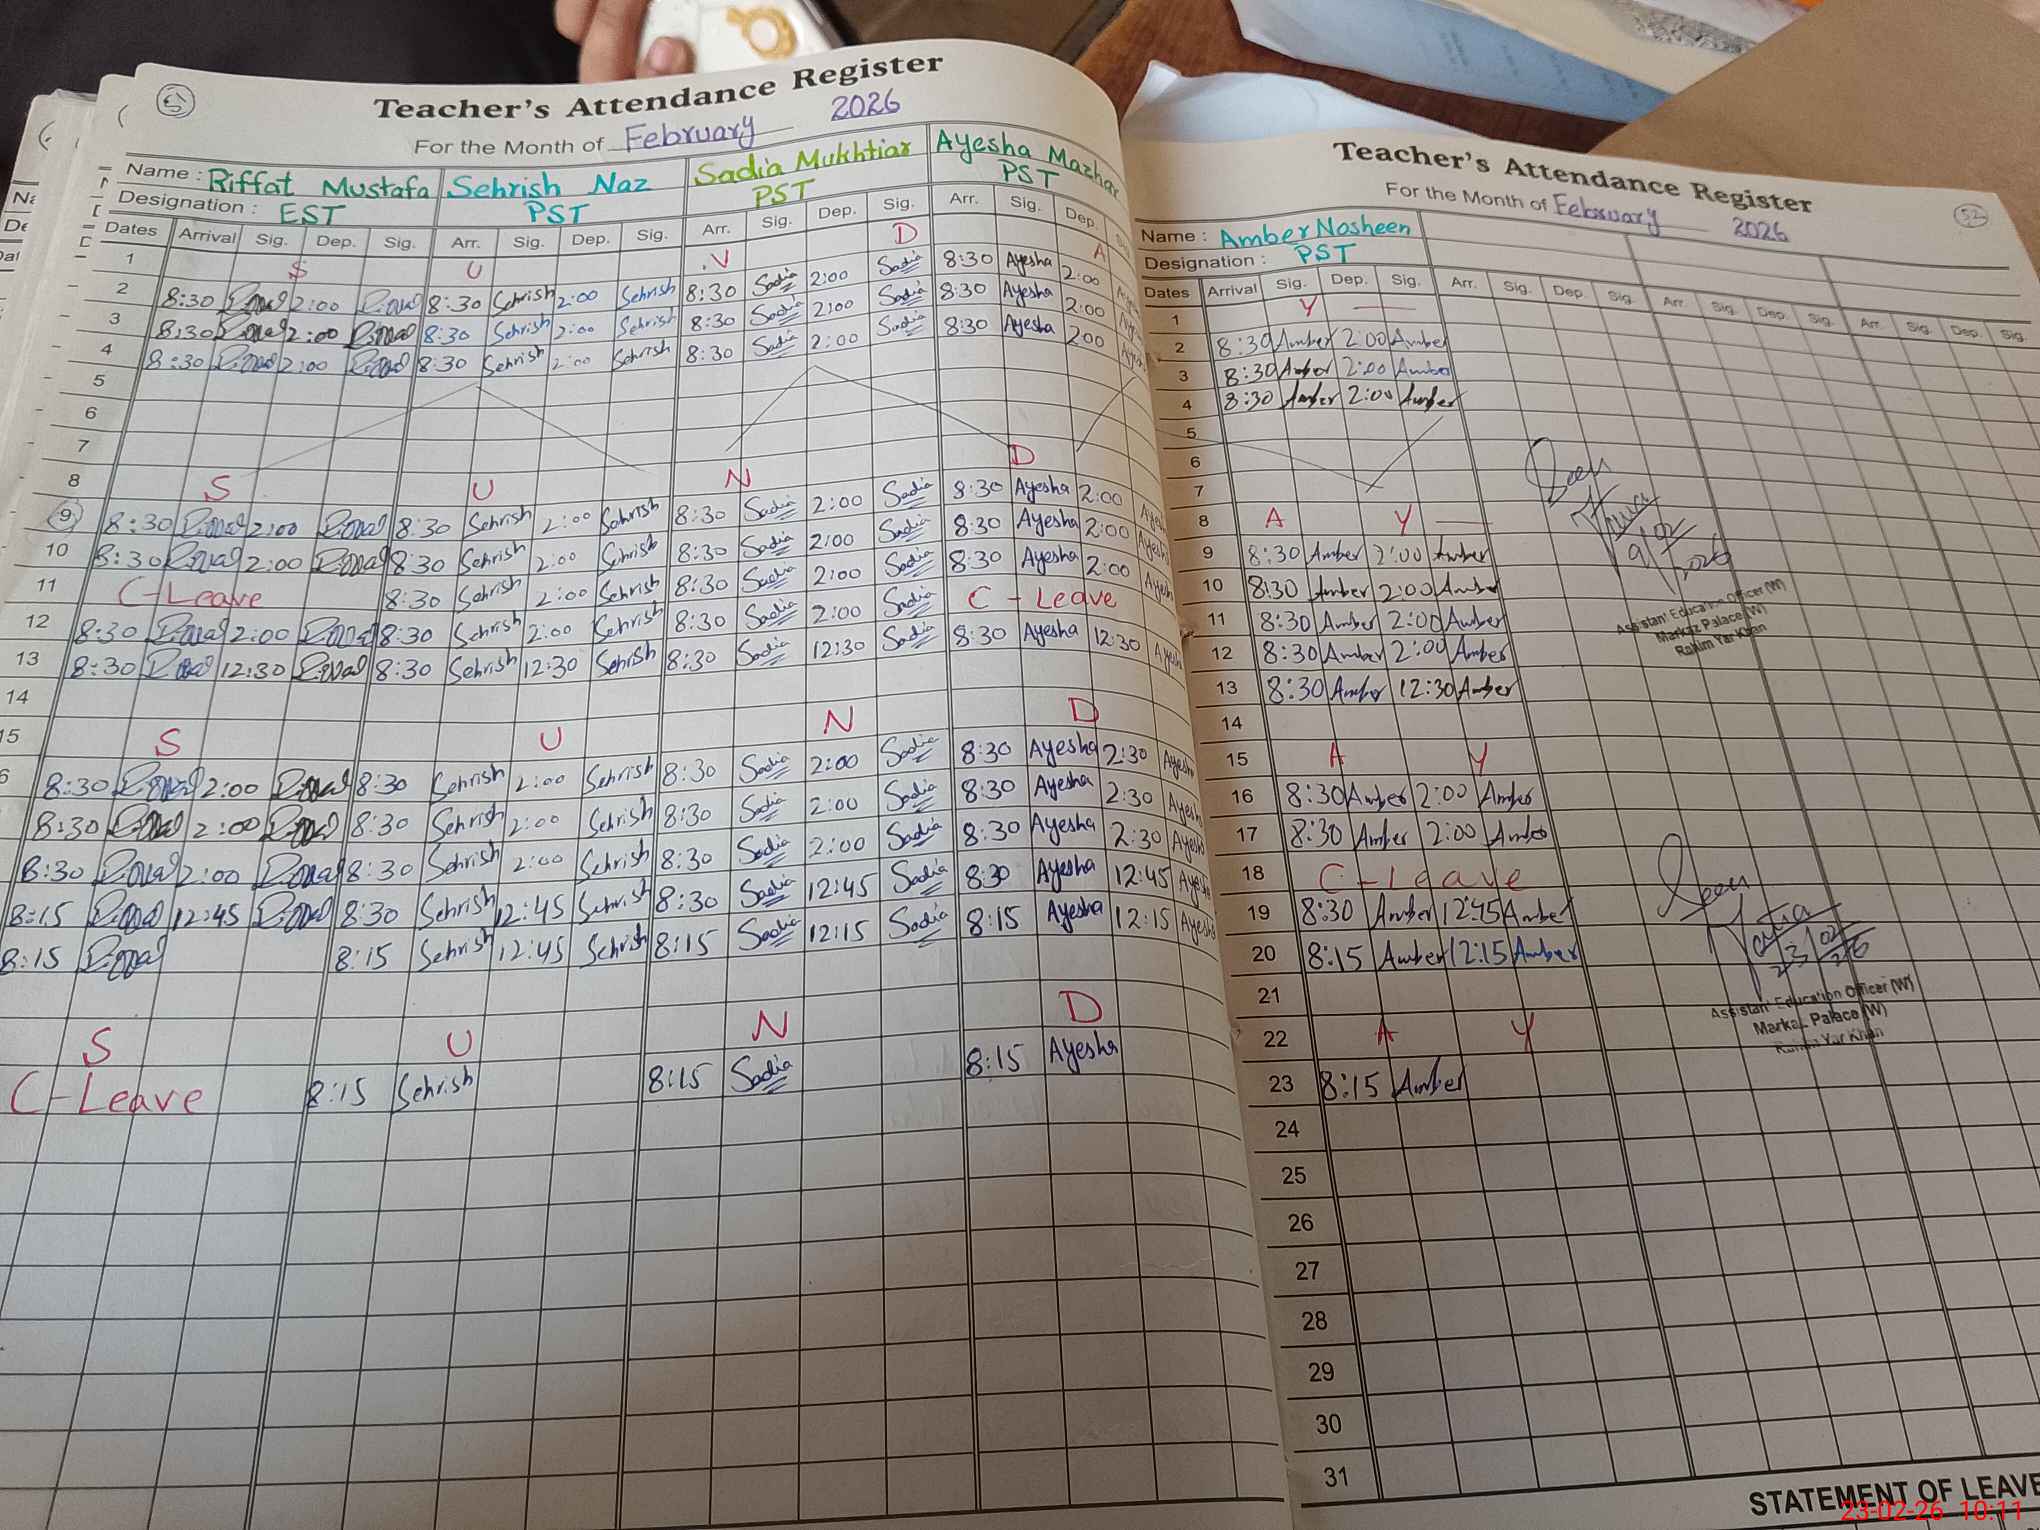 Teacher's Attendance Register
For the Month of February 2026
Name : Riffat Mustafa Sehrish Naz Sadia Mukhtiar Ayesha Mazhar
Designation : EST PST PST PST
Dates Arrival Sig. Dep. Sig. Arr. Sig. Dep. Sig. Arr. Sig. Dep. Sig. Arr. Sig. Dep.
1 S U N D A
2 8:30 2:00 8:30 Sehrish 2:00 Sehrish 8:30 Sadia 2:00 Sadia 8:30 Ayesha 2:00
3 8:30 2:00 8:30 Sehrish 2:00 Sehrish 8:30 Sadia 2:00 Sadia 8:30 Ayesha 2:00
4 8:30 2:00 8:30 Sehrish 2:00 Sehrish 8:30 Sadia 2:00 Sadia 8:30 Ayesha 2:00
5
6
7
8 S U N D
9 8:30 2:00 8:30 Sehrish 2:00 Sehrish 8:30 Sadia 2:00 Sadia 8:30 Ayesha 2:00
10 8:30 2:00 8:30 Sehrish 2:00 Sehrish 8:30 Sadia 2:00 Sadia 8:30 Ayesha 2:00
11 C-Leave 8:30 Sehrish 2:00 Sehrish 8:30 Sadia 2:00 Sadia 8:30 Ayesha 2:00 Ayesha
12 8:30 2:00 8:30 Sehrish 2:00 Sehrish 8:30 Sadia 2:00 Sadia C - Leave
13 8:30 12:30 8:30 Sehrish 12:30 Sehrish 8:30 Sadia 12:30 Sadia 8:30 Ayesha 12:30
14
15 S U N D
6 8:30 2:00 8:30 Sehrish 2:00 Sehrish 8:30 Sadia 2:00 Sadia 8:30 Ayesha 2:30
8:30 2:00 8:30 Sehrish 2:00 Sehrish 8:30 Sadia 2:00 Sadia 8:30 Ayesha 2:30
8:30 2:00 8:30 Sehrish 2:00 Sehrish 8:30 Sadia 2:00 Sadia 8:30 Ayesha 2:30
8:15 12:45 8:30 Sehrish 12:45 Sehrish 8:30 Sadia 12:45 Sadia 8:30 Ayesha 12:45
8:15 8:15 Sehrish 12:45 Sehrish 8:15 Sadia 12:15 Sadia 8:15 Ayesha 12:15
S U N D
C-Leave 8:15 Sehrish 8:15 Sadia 8:15 Ayesha
Teacher's Attendance Register
For the Month of February 2026
52
Name : Amber Nosheen
Designation : PST
Dates Arrival Sig. Dep. Sig. Arr. Sig. Dep. Sig. Arr. Sig. Dep. Sig. Arr. Sig. Dep. Sig.
1 Y
2 8:30 Amber 2:00 Amber
3 8:30 Amber 2:00 Amber
4 8:30 Amber 2:00 Amber
5
6
7
8 A Y
9 8:30 Amber 2:00 Amber
10 8:30 Amber 2:00 Amber
11 8:30 Amber 2:00 Amber
12 8:30 Amber 2:00 Amber
13 8:30 Amber 12:30 Amber
14
15 A Y
16 8:30 Amber 2:00 Amber
17 8:30 Amber 2:00 Amber
18 C-Leave
19 8:30 Amber 12:45 Amber
20 8:15 Amber 12:15 Amber
21
22 A Y
23 8:15 Amber
24
25
26
27
28
29
30
31
Seen
9/02/2026
Assistant Education Officer (W)
Markaz Palace (W)
Rahim Yar Khan
Seen
23/02/26
Assistant Education Officer (W)
Markaz Palace (W)
Rahim Yar Khan
STATEMENT OF LEAVE
23-02-26 10:11